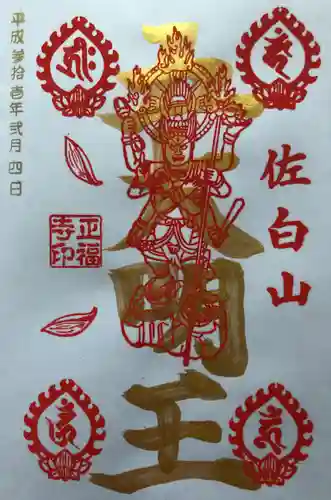 佐白山
五大明王
正福
寺印
平成参拾壱年弐月四日